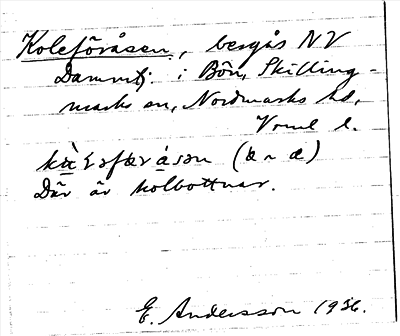 Koleföråsen, bergås NV
Dammtj. i Bön, Skilling-
marks sn, Nordmarks hd,
Vrml l.
(æ ~ œ)
Där är kolbottnar.
E. Andersson 1936.